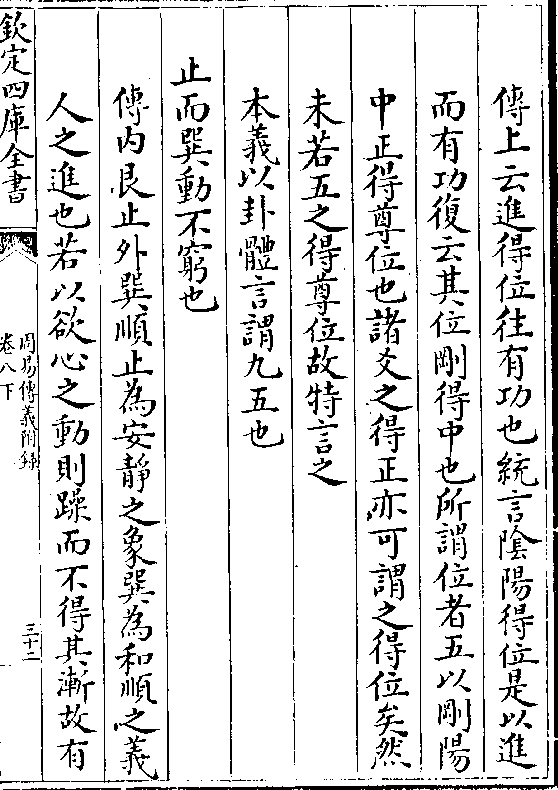 傳上云進得位往有功也統言陰陽得位是以進
而有功復云其位剛得中也所謂位者五以剛陽
中正得尊位也諸爻之得正亦可謂之得位矣然
未若五之得尊位故特言之
本義以卦體言謂九五也
止而巽動不窮也
傳内艮止外巽順止為安靜之象巽為和順之義
人之進也若以欲心之動則躁而不得其漸故有
欽定四庫全書
周易傳義附録
卷八下
三十二